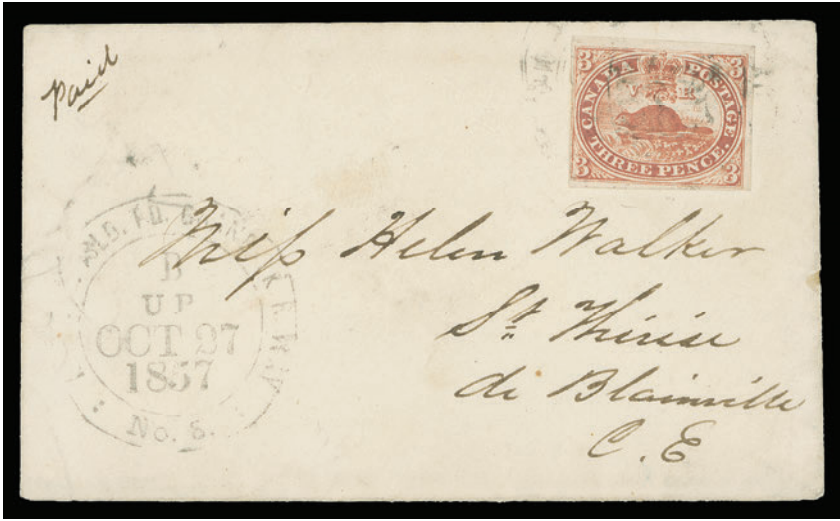 Paid
3 3
CANADA POSTAGE.
V R
THREE PENCE.
3 3
B
UP
OCT 27
1857
No. 8.
Miſs Helen Walker
St. Thérèse
de Blainville
C. E